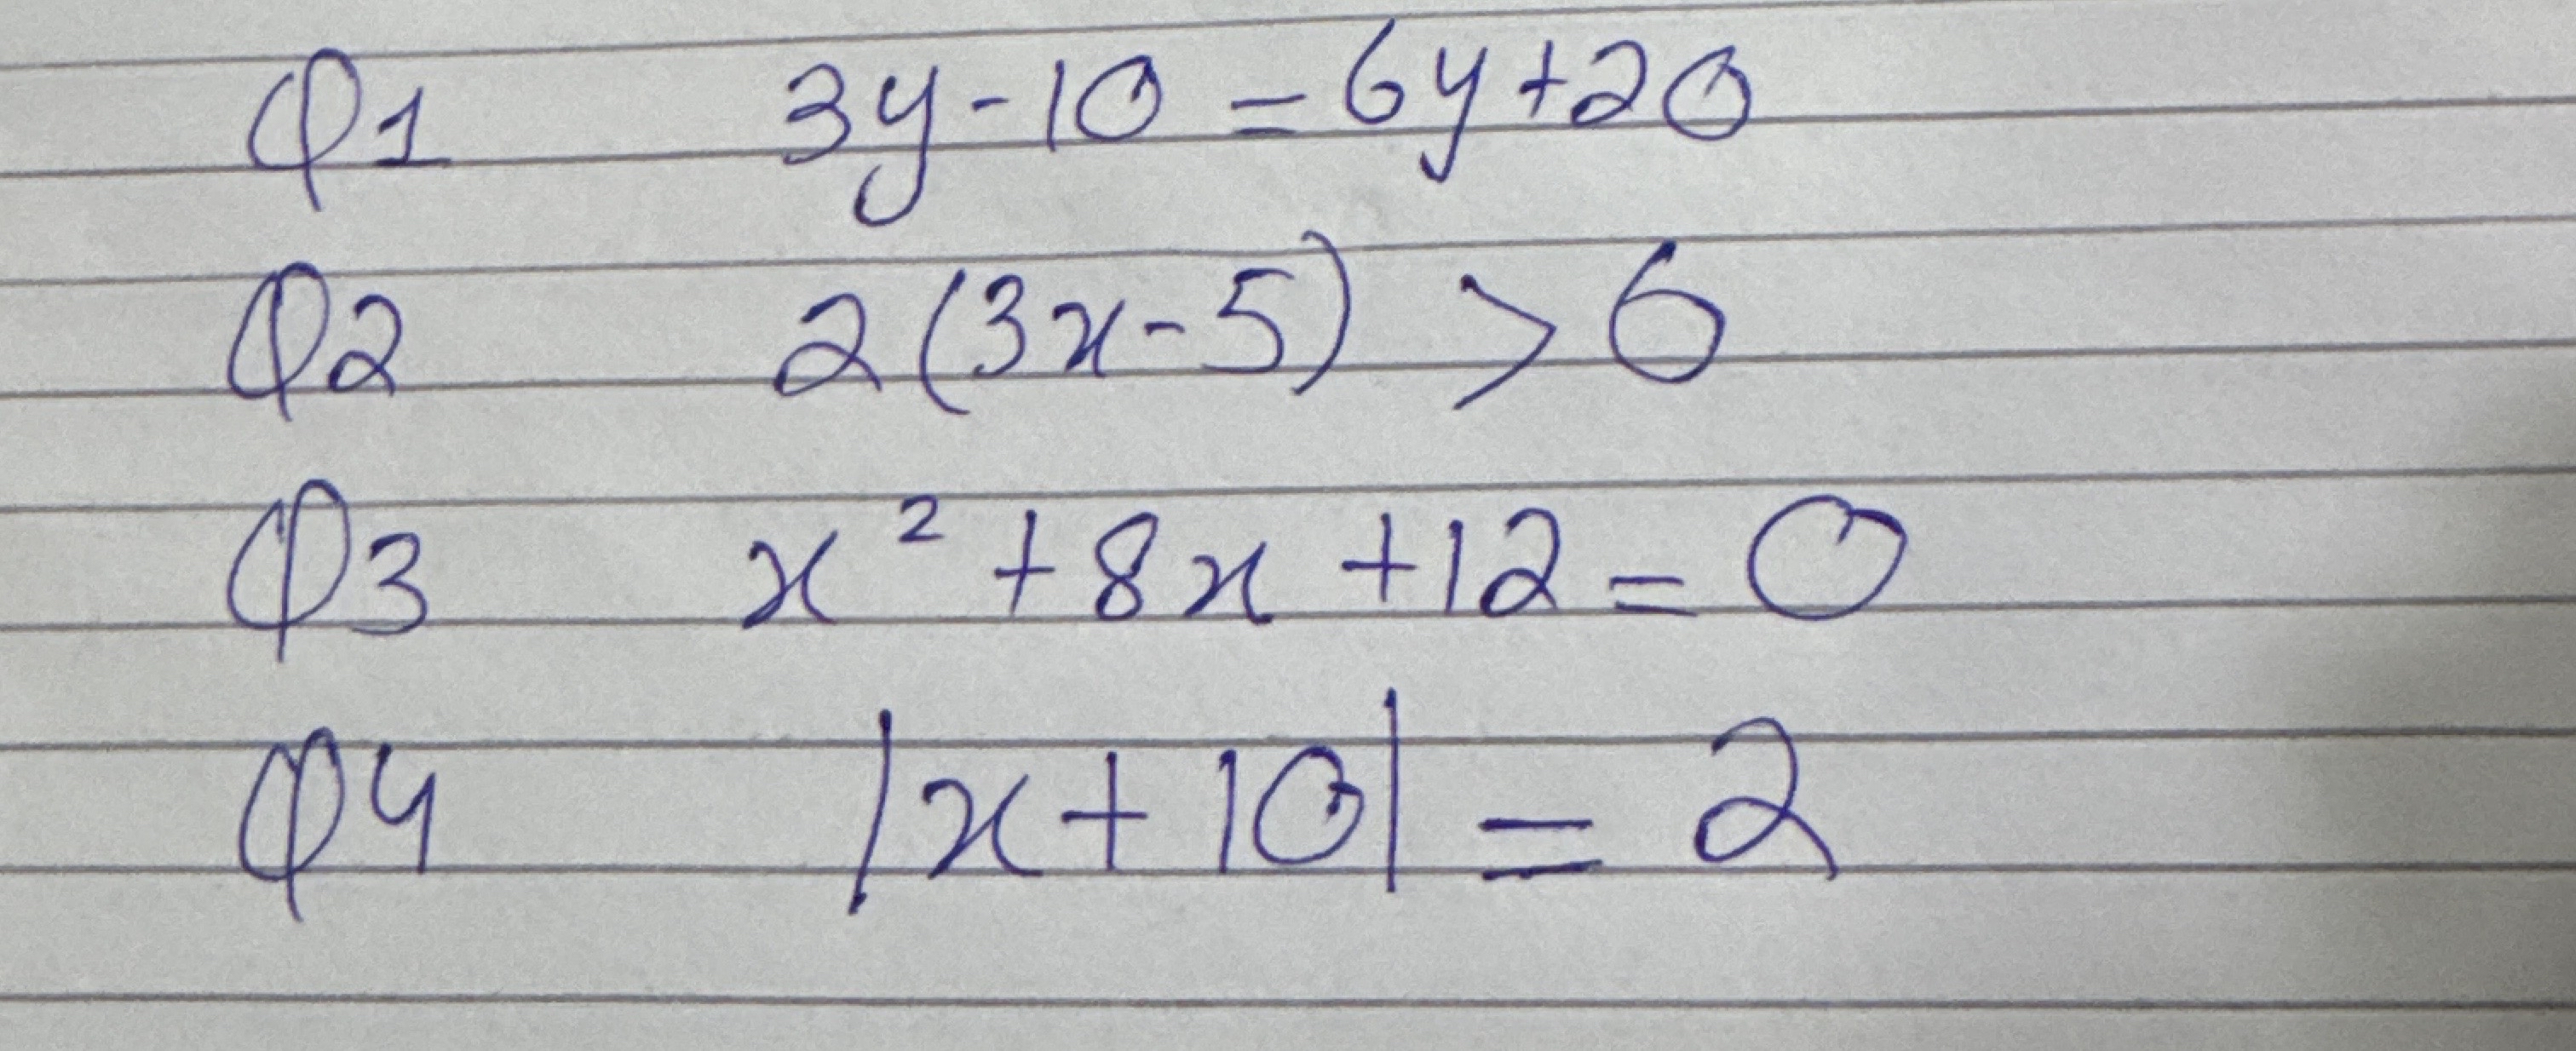 Q1 3y-10 = 6y+20
Q2 2(3x-5) > 6
Q3 x² + 8x + 12 = 0
Q4 |x+10| = 2